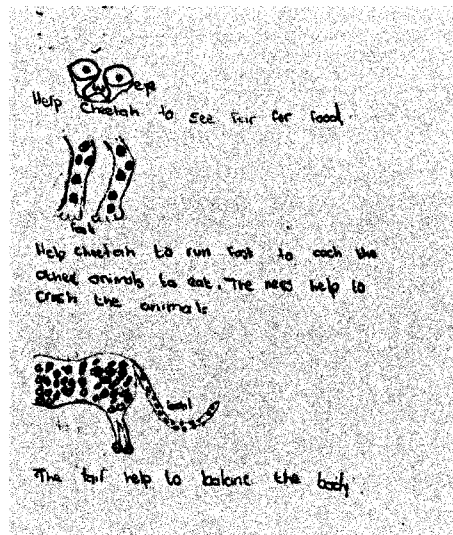 eye
Help Cheetah to see fair for food.
foot
Help cheetah to run fast to cach the
other animals to eat. The help to
crash the animals
tail
The tail help to balanc the body